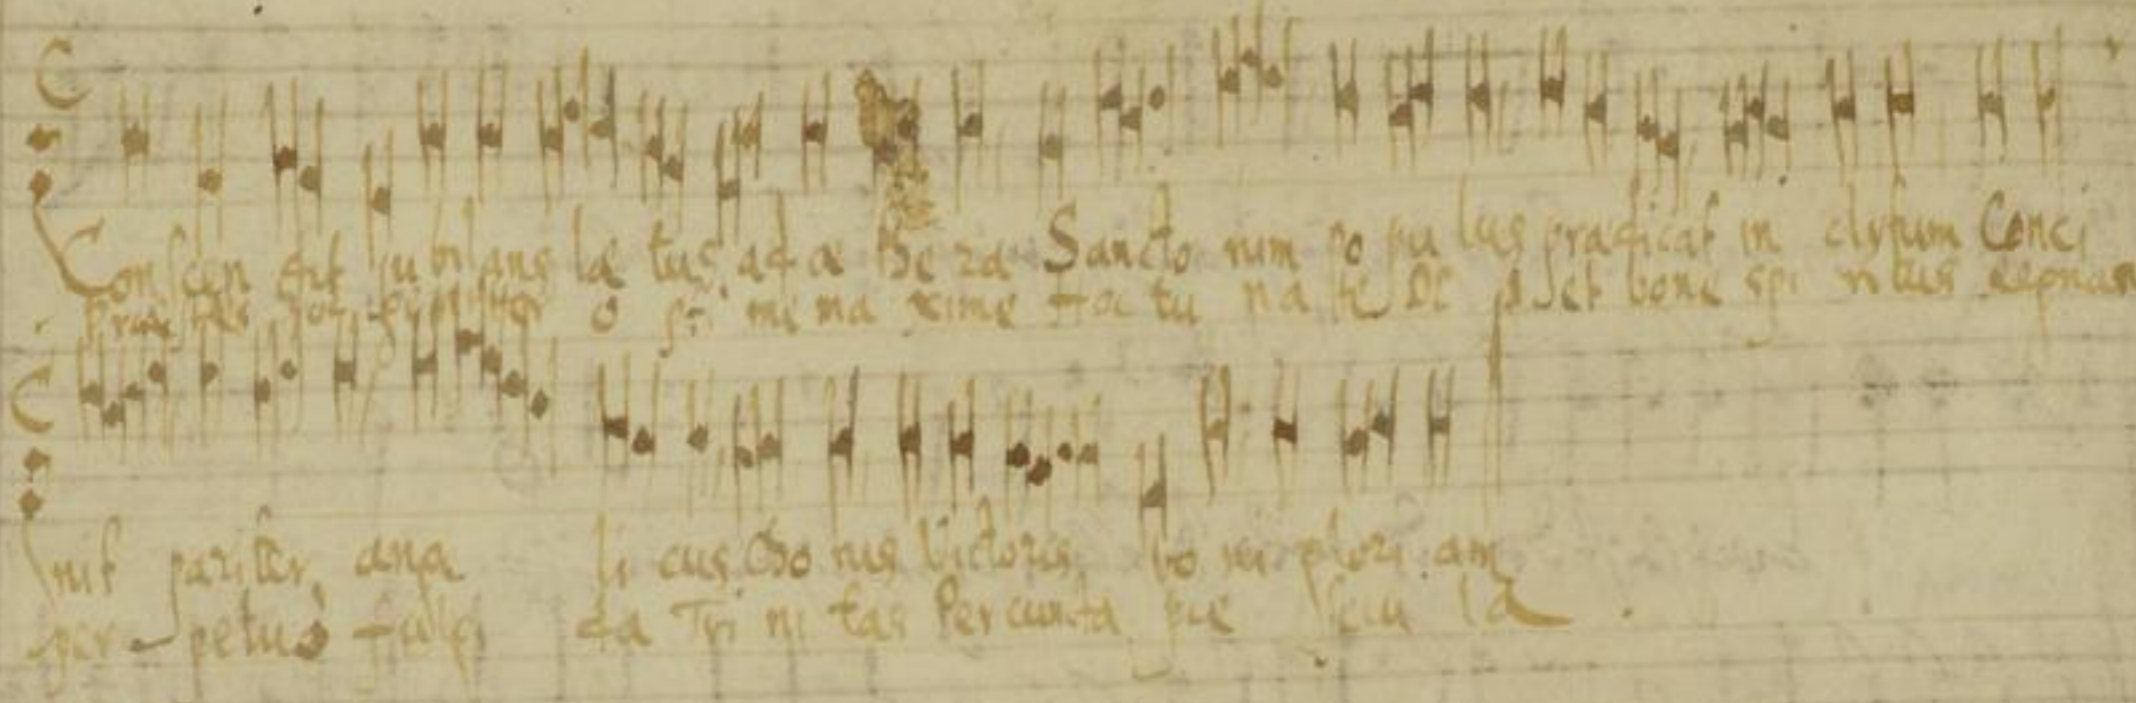 Conscendit iubilans laetus ad aethera Sanctorum populus praedicat inclytum Conci
Praestes hoc genitor optime maxime Hoc tu nate Dei et bone spiritus Regnans
nit pariter angelicus chorus Victoris boni gloriam
perpetuo fulgida Trinitas Per cuncta pie secula